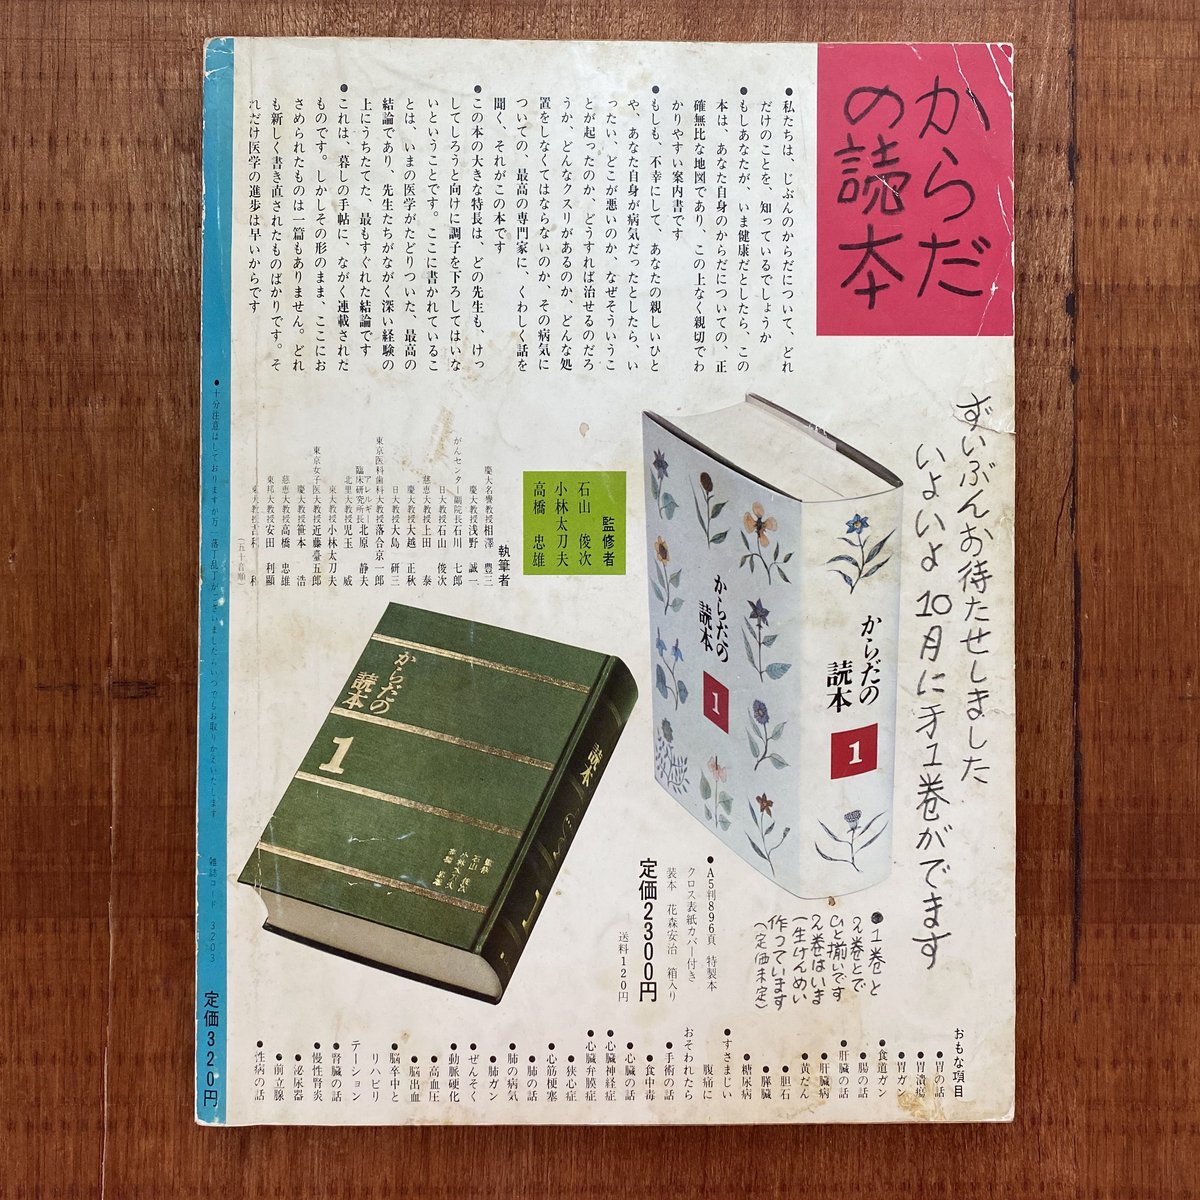 からだ
の読本
●私たちは、じぶんのからだについて、どれ
だけのことを、知っているでしょうか
●もしあなたが、いま健康だとしたら、この
本は、あなた自身のからだについての、正
確無比な地図であり、この上なく親切でわ
かりやすい案内書です
●もしも、不幸にして、あなたの親しいひと
や、あなた自身が病気だったとしたら、い
ったい、どこが悪いのか、なぜそういうこ
とが起ったのか、どうすれば治せるのだろ
うか、どんなクスリがあるのか、どんな処
置をしなくてはならないのか、その病気に
ついての、最高の専門家に、くわしく話を
聞く、それがこの本です
●この本の大きな特長は、どの先生も、けっ
してしろうと向けに調子を下ろしてはいな
いということです。ここに書かれているこ
とは、いまの医学がたどりついた、最高の
結論であり、先生たちがながく深い経験の
上にうちたてた、最もすぐれた結論です
●これは、暮しの手帖に、ながく連載された
ものです。しかしその形のまま、ここにお
さめられたものは一篇もありません。どれ
も新しく書き直されたものばかりです。そ
れだけ医学の進歩は早いからです
ずいぶんお待たせしました
いよいよ10月に才1巻がでます
からだの
読本
1
からだの
読本
1
監修者
石山 俊次
小林太刀夫
高橋 忠雄
執筆者
慶大名誉教授 相澤 豊三
慶大教授 浅野 誠一
がんセンター副院長 石川 七郎
日大教授 石山 俊次
慈恵大教授 上田 泰
慶大教授 大越 正秋
日大教授 大島 研三
東京医科歯科大教授 落合京一郎
アレルギー臨床研究所長 北原 静夫
北里大教授 児玉 威
東大教授 小林太刀夫
東京女子医大教授 近藤臺五郎
慶大教授 笹本 浩
慈恵大教授 高橋 忠雄
東邦大教授 安田 利顕
東大教授 吉利 和
(五十音順)
からだの
読本
1
読本
監修
石山 俊次
小林太刀夫
高橋 忠雄
●1巻と
2巻とで
ひと揃いです
2巻はいま
一生けんめい
作っています
(定価未定)
●A5判896頁 特製本
クロス表紙カバー付き
装本 花森安治 箱入り
定価2300円
送料120円
おもな項目
●胃の話
●胃潰瘍
●胃ガン
●食道ガン
●腸の話
●肝臓の話
●肝臓病
●黄だん
●胆石
●膵臓
●糖尿病
●すさまじい
腹痛に
おそわれたら
●手術の話
●食中毒
●心臓の話
●心臓神経症
●心臓弁膜症
●狭心症
●心筋梗塞
●肺の話
●肺の病気
●肺ガン
●ぜんそく
●動脈硬化
●高血圧
●脳出血
●脳卒中と
リハビリ
テーション
●腎臓の話
●慢性腎炎
●泌尿器
●前立腺
●性病の話
●十分注意はしておりますが万一落丁乱丁がございましたらいつでもお取りかえいたします
雑誌コード 3203
定価320円